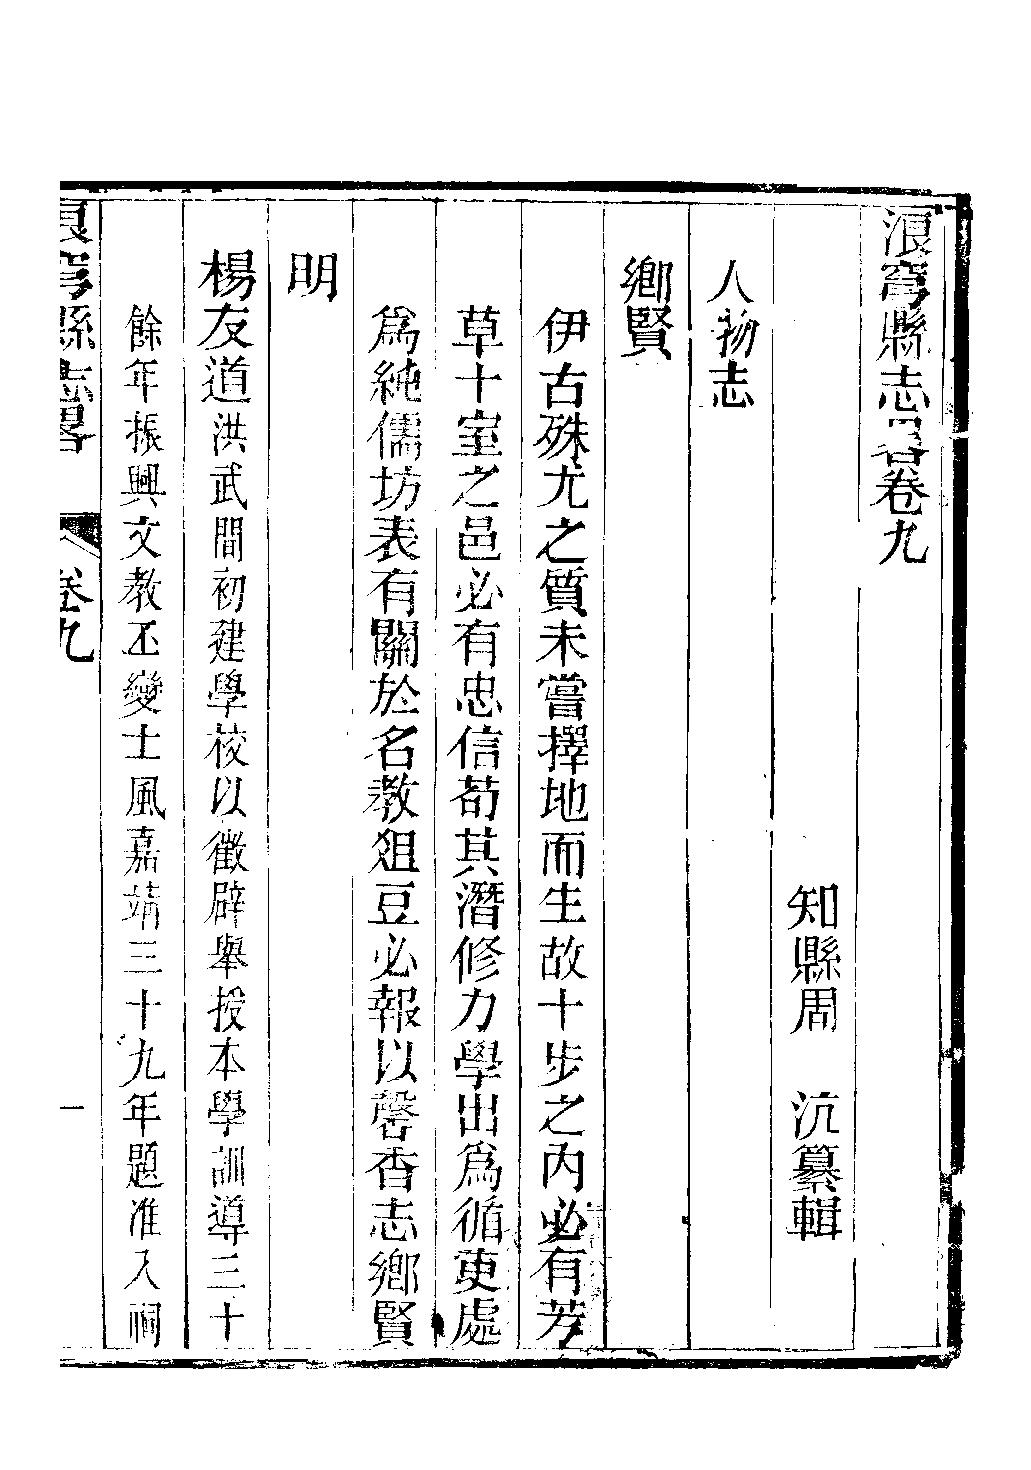 浪穹縣志畧卷九
知縣周　沆纂輯
人物志
鄉賢
伊古殊尤之質未嘗擇地而生故十步之內必有芳
草十室之邑必有忠信苟其潛修力學出爲循吏處
爲純儒坊表有關於名教俎豆必報以馨香志鄉賢
明
楊友道洪武間初建學校以徵辟舉授本學訓導三十
餘年振興文教丕變士風嘉靖三十九年題准入祠
浪穹縣志畧　卷九　一